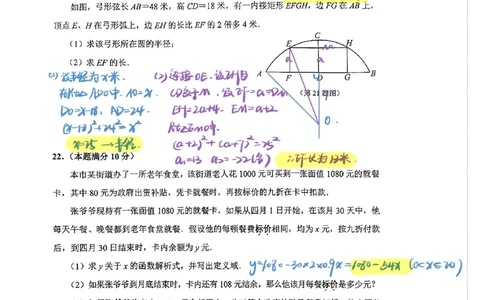 如图，弓形弦长AB=48米，高CD=18米，有一内接矩形EFGH，边FG在AB上，
顶点E、H在弓形弧上，边EH的长比EF的2倍多4米.
（1）求该弓形所在圆的半径；
（2）求EF的长.
C
E
H
A
F
D
G
B
（第21题图）
O
(1) 设半径为x米.
在Rt△ADO中, AO=x.
DO=x-18, AD=24.
(x-18)²+24²=x²
x=25
(2) 连接OE, 设
EH=2a+4. EM=a+2
Rt△EMO中.
(a+2)²+(a+7)²=25²
a₁=13 a₂=-22(舍)
22.（本题满分10分）
本市某街道办了一所老年食堂，该街道老人花1000元可买到一张面值1080元的就餐
卡，其中80元为政府出资补贴，凭卡就餐时，再按标价的九折在卡中扣款.
张爷爷现持有一张面值1080元的就餐卡，如果从四月1日开始，在该月30天中，他
每天午餐、晚餐都到老年食堂就餐. 假设他的每顿餐费标价相同，均为x元，按九折付款
后，到四月30日结束时，卡内余额为y元.
（1）求y关于x的函数解析式，并写出定义域. y=1080-30×2×0.9x=1080-54x (0<x≤20)
（2）如果张爷爷到月底结束时，卡内还有108元结余，那么他该月每餐标价是多少元？